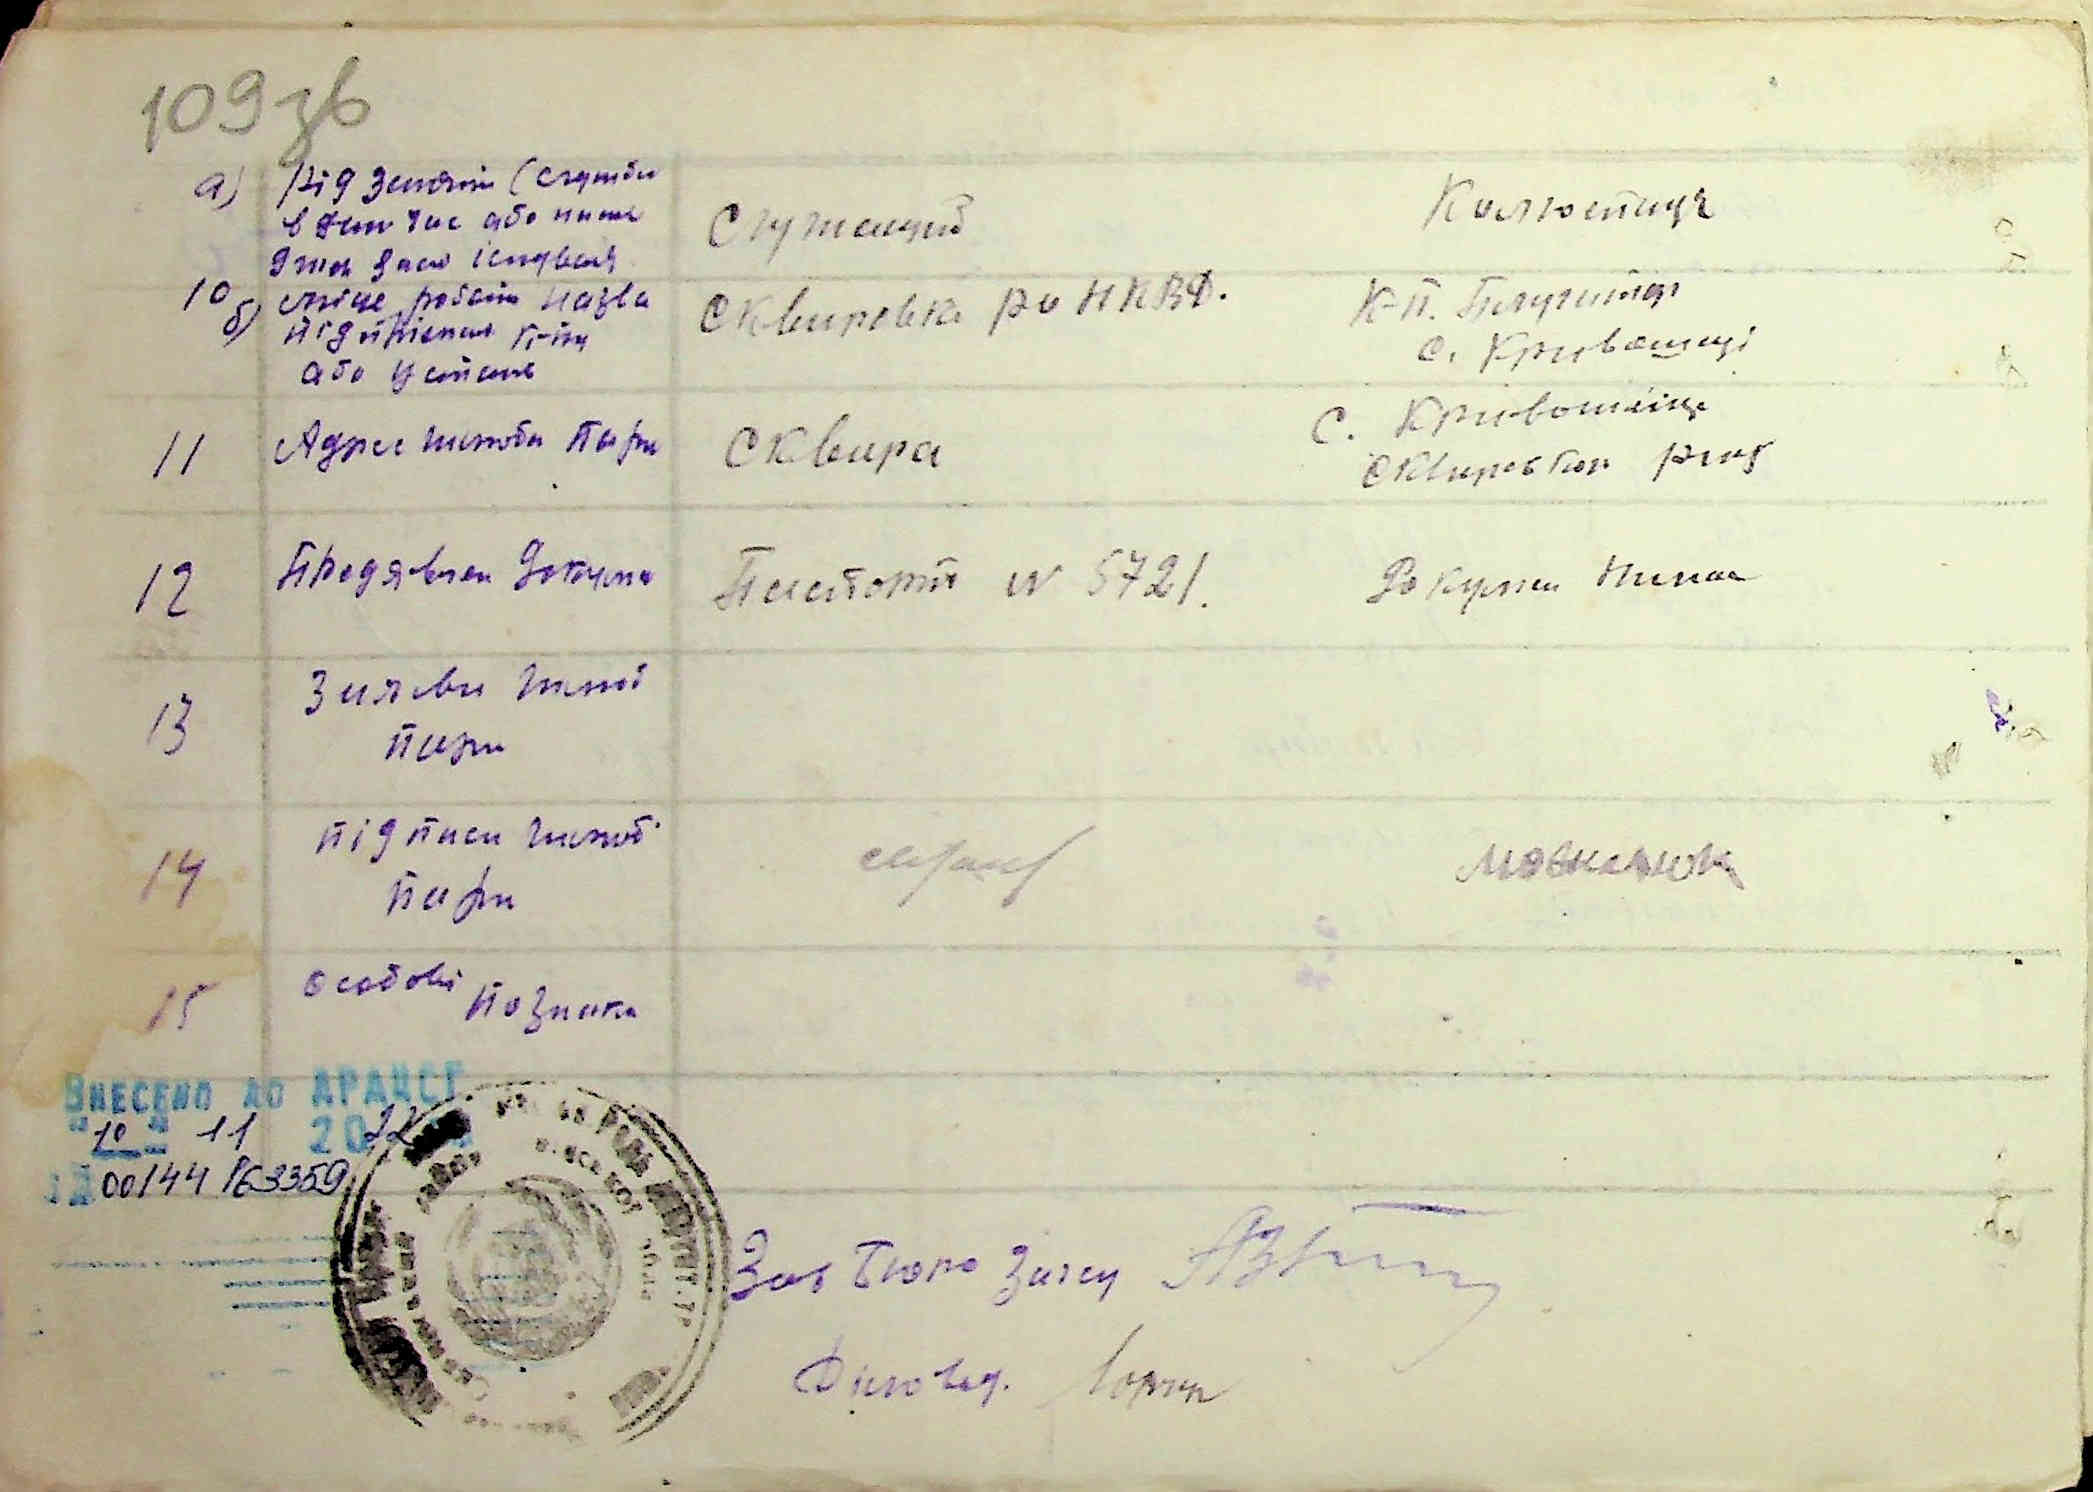 109 зв
а) Рід занять (служби
в дан час або інше
джер засо існуваня
Служащий
Колгоспниця
10 б) місце роботи назва
підприємст к-пу
або установ
Сквирське ро НКВД.
К-п. Плугатар
с. Кривошиї
11 Адрес шлюбн пари
Сквира
с. Кривошиїнці
Сквирськ рну
12 Предявлен документ
Паспорт № 5721.
Документ Нимає
13 Заяви шлюб
пари
14 підписи шлюб
пари
15 особові познаки
Внесено до АРАЦСГ
"10" 11 2022
00144163359
Зав Бюро Загсу
Діловод.